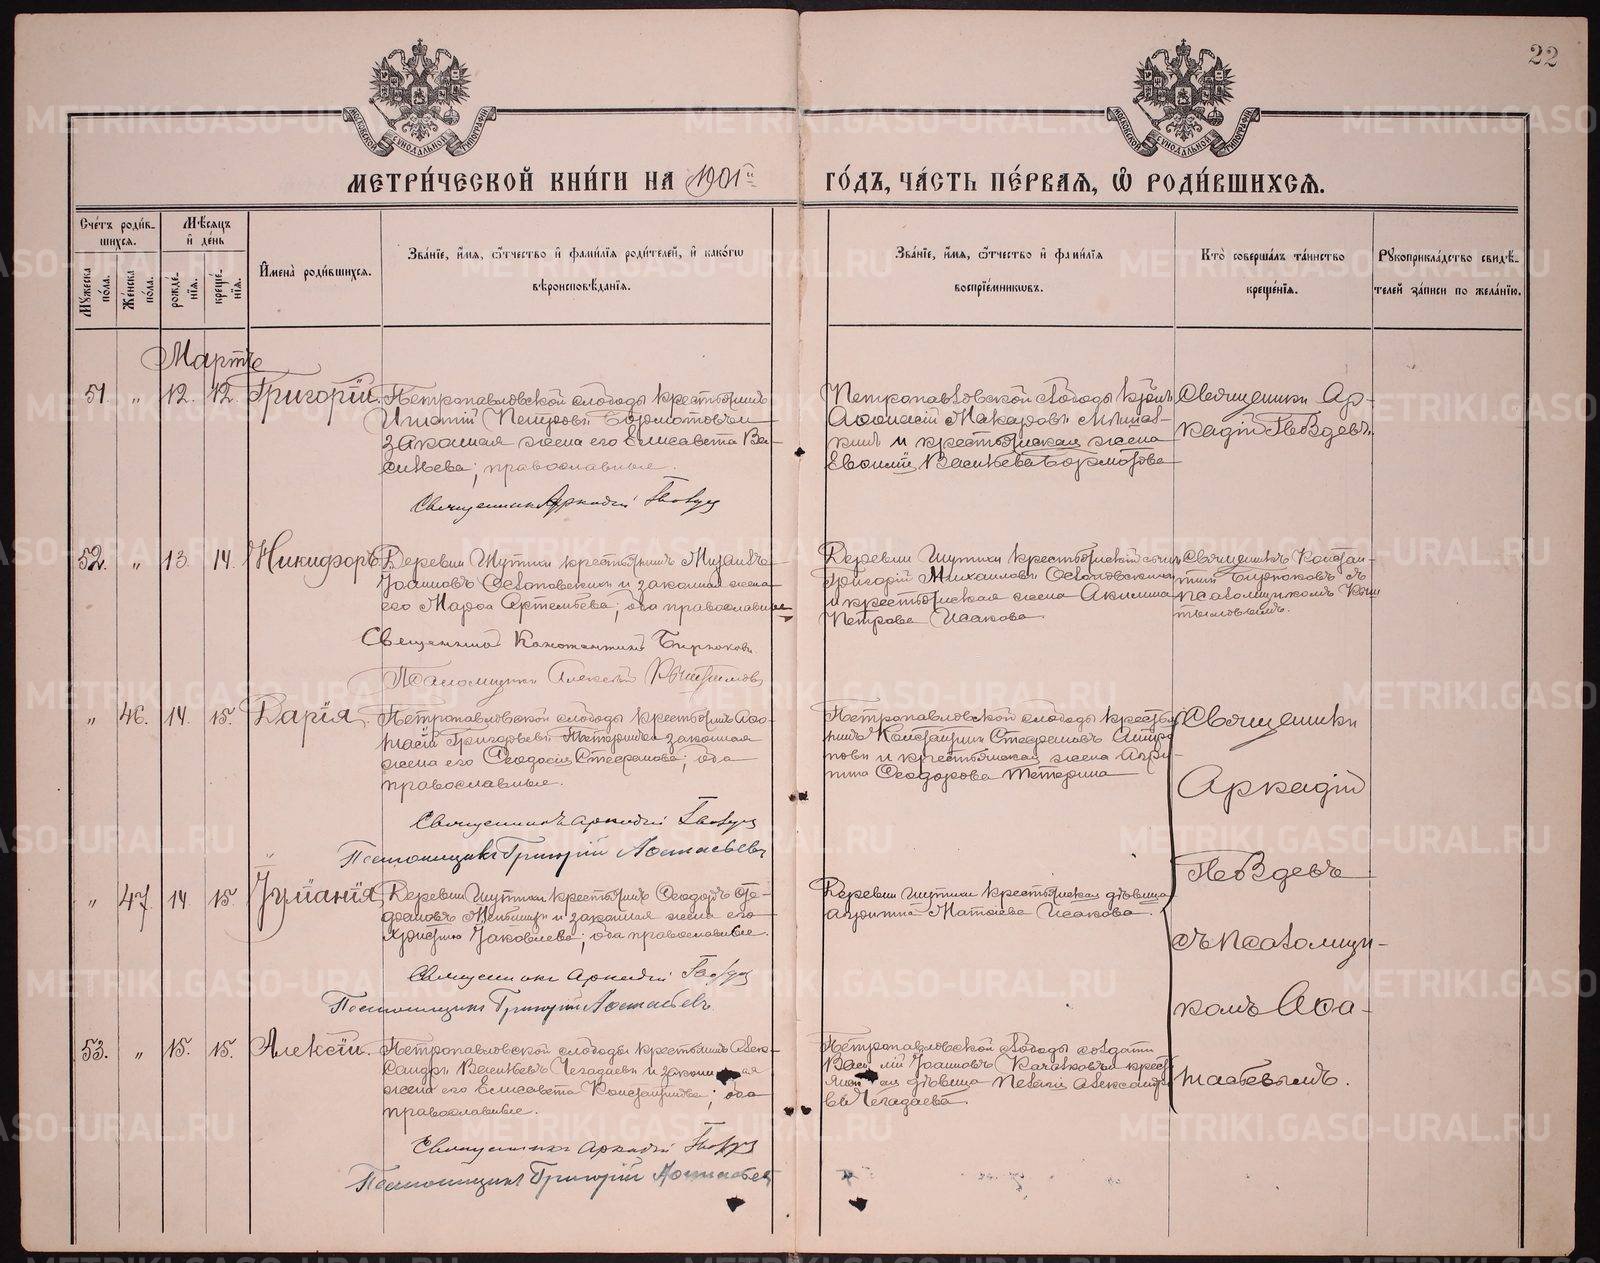 22
МЕТРИ́ЧЕСКОЙ КНИ́ГИ НА 1901й ГО́ДЪ, ЧА́СТЬ ПЕ́РВАЯ, Ѽ РОДИ́ВШИХСЯ.
МОСКОВСКОЙ СѴНОДАЛЬНОЙ ТИПОГРАФІИ
МОСКОВСКОЙ СѴНОДАЛЬНОЙ ТИПОГРАФІИ
Сче́тъ роди́в-
шихся.
Мѣсяцъ
и҆ де́нь
Мꙋжеска по́ла.
Же́нска по́ла.
рожде́-
нїѧ.
креще́-
нїѧ.
И҆мена̀ роди́вшихся.
Зва́нїе, и҆́мѧ, ѻ҆́тчество и҆ фами́лїѧ роди́телей, и҆ како́гѡ
вѣроисповѣ́данїѧ.
Зва́нїе, и҆́мѧ, ѻ҆́тчество и҆ фами́лїѧ
воспрїе́мникѡвъ.
Кто̀ соверша́лъ та́инство
креще́нїѧ.
Рꙋкоприкла́дство свидѣ́-
телей за́писи по жела́нїю.
Мартъ
51. „ 12. 12. Григорій.
Петропавловской слободы крестьянинъ
Игнатій Петровъ Бормотовъ и
законная жена его Елисавета Ва-
сильева; православные.
Священникъ Аркадій Гвоздевъ
Петропавловской слободы крест.
Афонасій Макаровъ
и крестьянская жена
Евфимія Васильева Бормотова
Священникъ Ар-
кадій Гвоздевъ.
52. „ 13. 14. Никифоръ
Деревни Шутихи крестьянинъ Михаилъ
Іоанновъ и законная жена
его Марфа Артемьева; оба православные
Священникъ Константинъ Бирюковъ
Псаломщикъ Алексѣй
Деревни Шутихи крестьянскій сынъ
Григорій Михаиловъ
и крестьянская жена Акилина
Петрова Исакова
Священникъ Констан-
тинъ Бирюковъ съ
псаломщикомъ
„ 46. 14. 15. Дарія.
Петропавловской слободы крестьянинъ Афо-
насій Григорьевъ Тетеринъ и законная
жена его Феодосія Стефанова; оба
православные.
Священникъ Аркадій Гвоздевъ
Псаломщикъ Григорій Афанасьевъ
Петропавловской слободы кресть-
нинъ Константинъ Стефановъ
и крестьянская жена Агри-
пина Феодорова Тетерина
Священникъ
Аркадій
Гвоздевъ
съ псаломщи-
комъ Афа-
насьевымъ.
„ 47. 14. 15. Іуліанія
Деревни Шутихи крестьянинъ Феодоръ
и законная жена его
Христина Іаковлева; оба православные.
Священникъ Аркадій Гвоздевъ
Псаломщикъ Григорій Афанасьевъ
Деревни Шутихи крестьянская дѣвица
Матфеева Исакова.
53. „ 15. 15. Алексій.
Петропавловской слободы крестьянинъ Алек-
сандръ Васильевъ Чегадаевъ и законная
жена его Елисавета Константинова; оба
православные.
Священникъ Аркадій Гвоздевъ
Псаломщикъ Григорій Афанасьевъ
Петропавловской слободы солдатъ
Василій Іоанновъ
дѣвица Пелагія Александро-
ва Чегадаева.